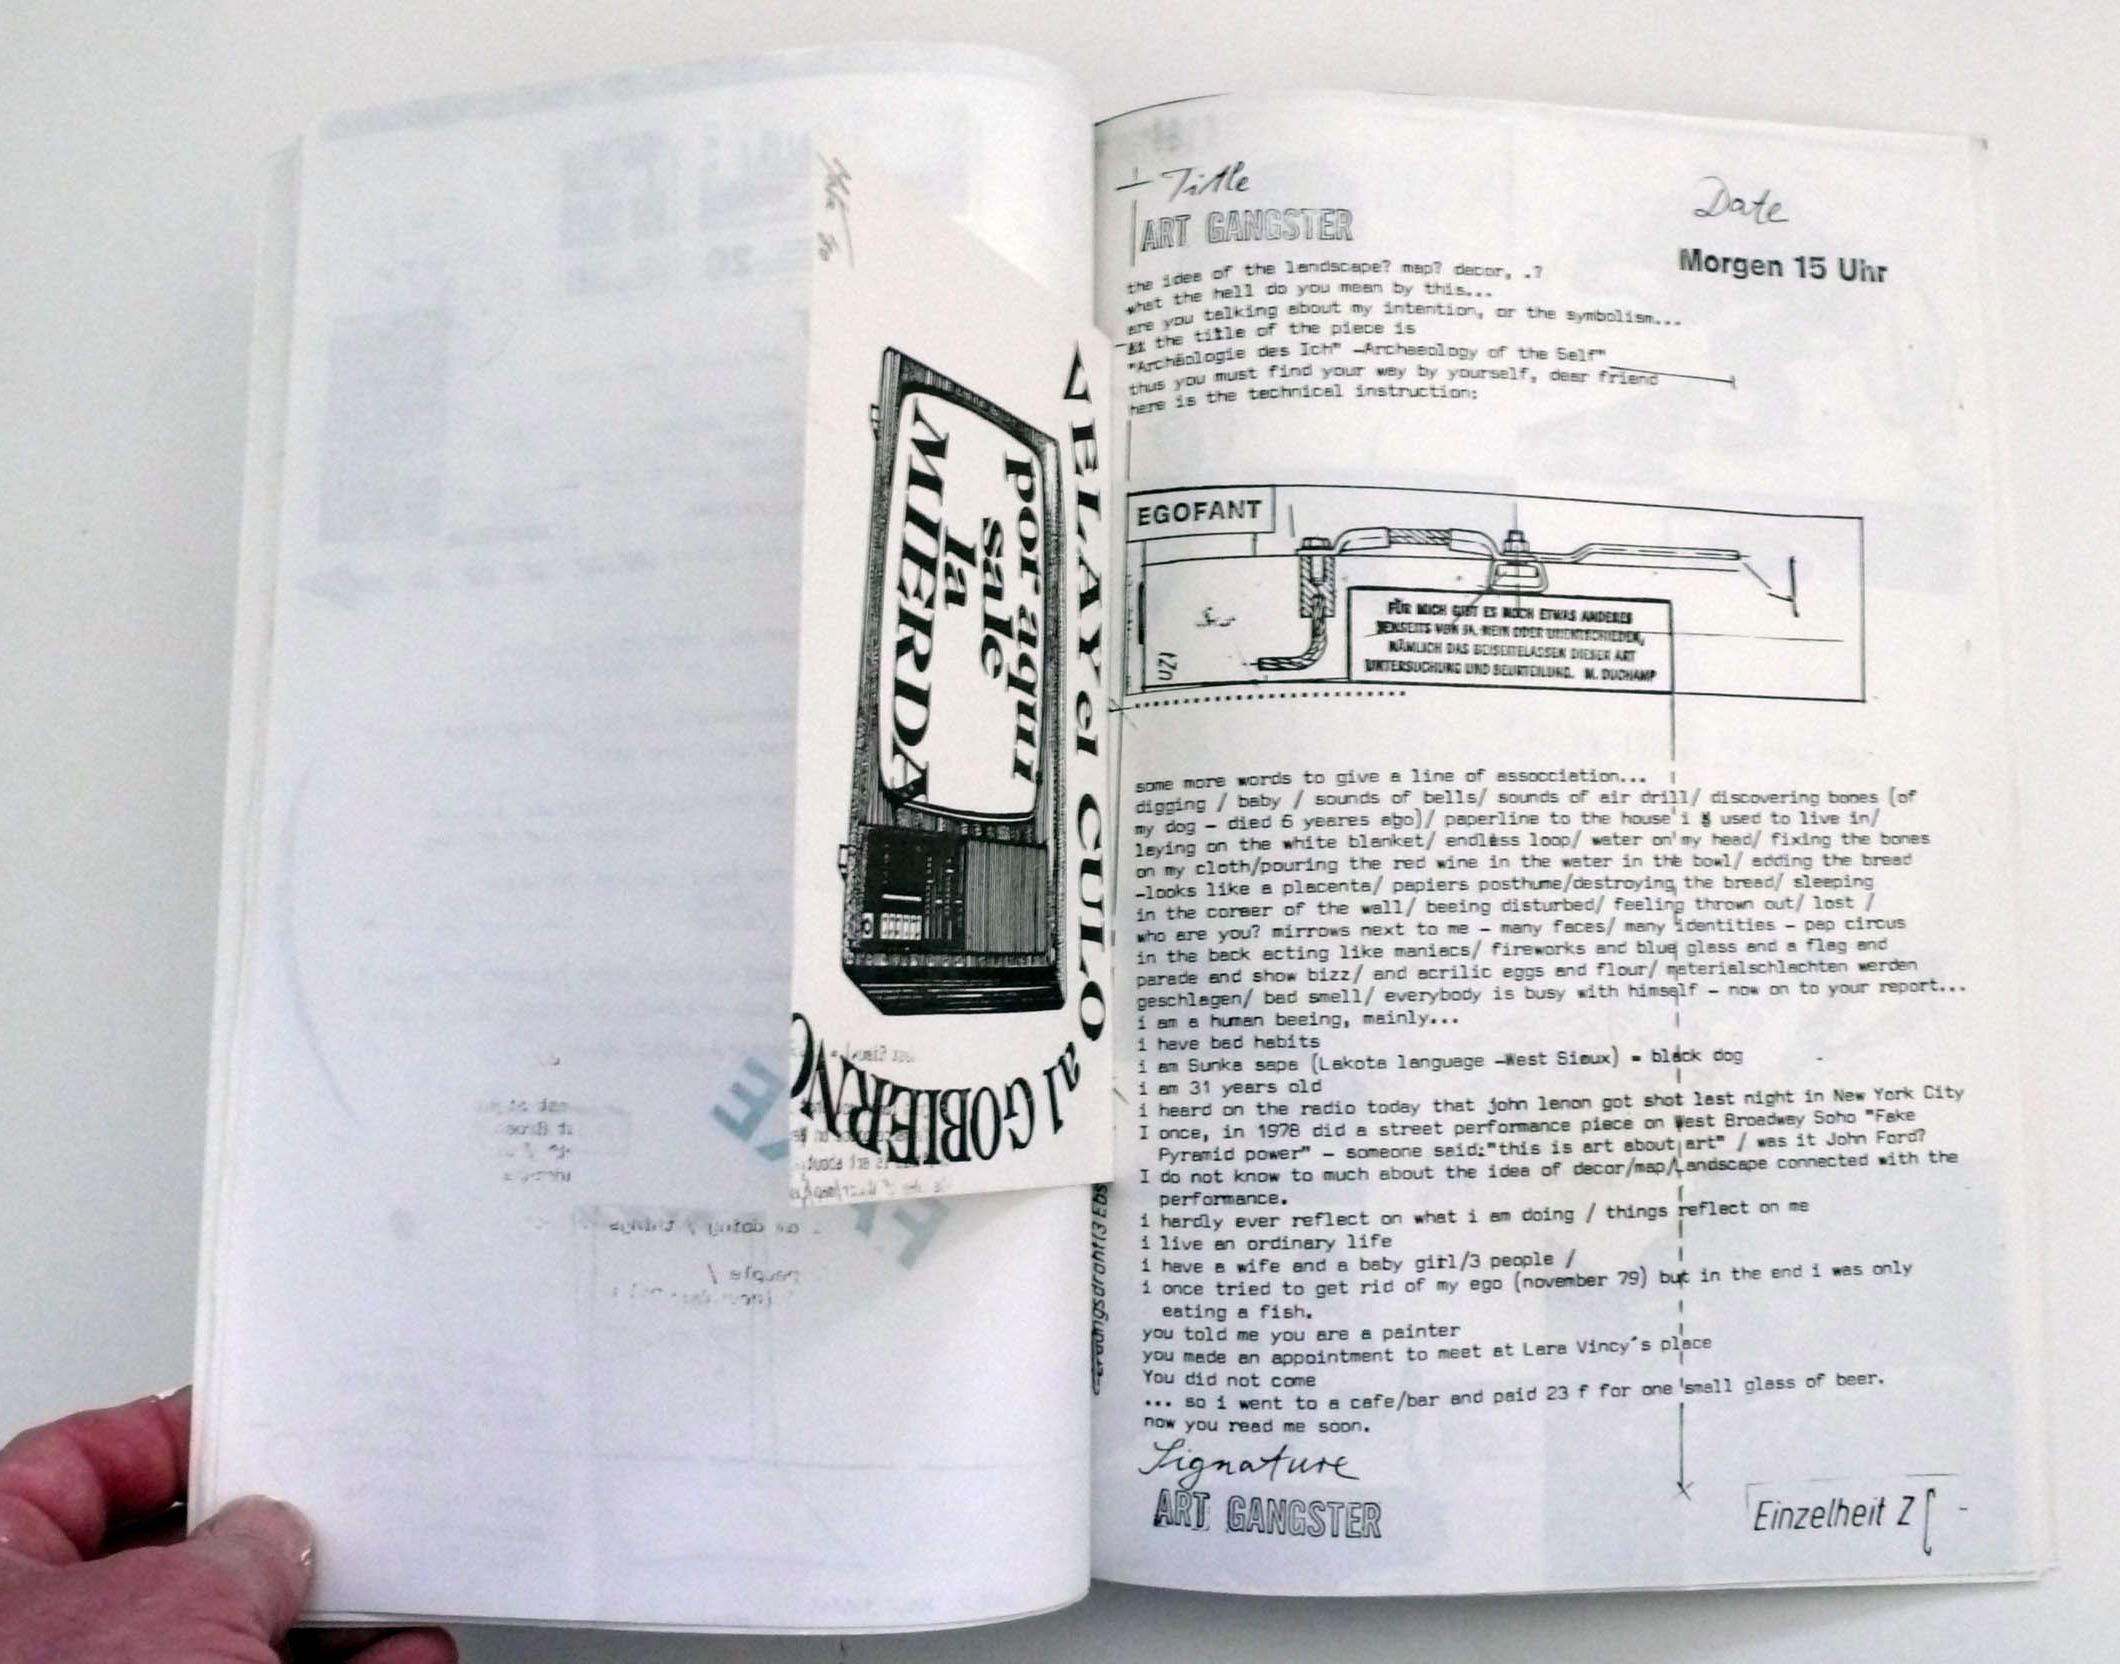 por aqui
sale
la
MIERDA
VELAY el CULO al GOBIERNO
Title
ART GANGSTER
Date
Morgen 15 Uhr
the idea of the landscape? map? decor, .?
what the hell do you mean by this...
are you talking about my intention, or the symbolism...
the title of the piece is
"Archäologie des Ich" -Archaeology of the Self"
thus you must find your way by yourself, dear friend
here is the technical instruction:
EGOFANT
FÜR MICH GIBT ES NOCH ETWAS ANDERES
JENSEITS VON JA, NEIN ODER UNENTSCHIEDEN,
NÄMLICH DAS BEISEITELASSEN DIESER ART
UNTERSUCHUNG UND BEURTEILUNG. M. DUCHAMP
some more words to give a line of assocciation...
digging / baby / sounds of bells/ sounds of air drill/ discovering bones (of
my dog - died 6 yeares ago)/ paperline to the house i used to live in/
laying on the white blanket/ endless loop/ water on my head/ fixing the bones
on my cloth/pouring the red wine in the water in the bowl/ adding the bread
-looks like a placenta/ papiers posthume/destroying the bread/ sleeping
in the corner of the wall/ beeing disturbed/ feeling thrown out/ lost /
who are you? mirrows next to me - many faces/ many identities - pap circus
in the back acting like maniacs/ fireworks and blue glass and a flag and
parade and show bizz/ and acrilic eggs and flour/ materialschlachten werden
geschlagen/ bad smell/ everybody is busy with himself - now on to your report...
i am a human beeing, mainly...
i have bad habits
i am Sunka sapa (Lakota language -West Sioux) = black dog
i am 31 years old
i heard on the radio today that john lenon got shot last night in New York City
I once, in 1978 did a street performance piece on West Broadway Soho "Fake
Pyramid power" - someone said:"this is art about art" / was it John Ford?
I do not know to much about the idea of decor/map/Landscape connected with the
performance.
i hardly ever reflect on what i am doing / things reflect on me
i live an ordinary life
i have a wife and a baby girl/3 people /
i once tried to get rid of my ego (november 79) but in the end i was only
eating a fish.
you told me you are a painter
you made an appointment to meet at Lara Vincy's place
You did not come
... so i went to a cafe/bar and paid 23 f for one small glass of beer.
now you read me soon.
Signature
ART GANGSTER
Einzelheit Z